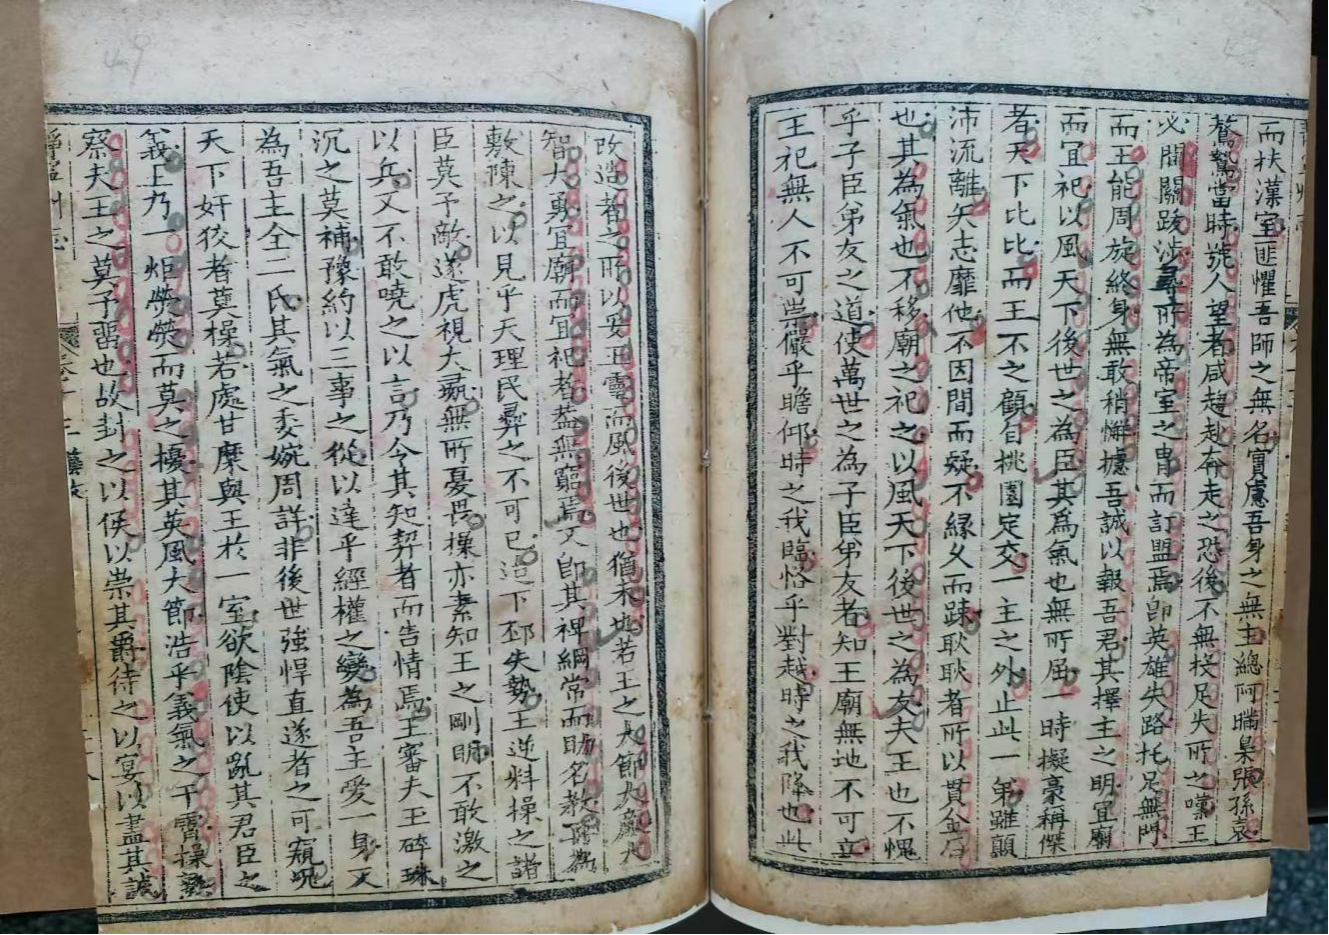 而扶漢室匪懼吾師之無名實慮吾身之無主總阿瞞梟張孫袁
驁鷙當時號人望者咸趦趄奔走之恐後不無枝足失所之嘆王
必間關跋涉尋所為帝室之冑而訂盟焉卽英雄失路托足無門
而王能周旋終身無敢稍懈據吾誠以報吾君其擇主之明宜廟
而宜祀以風天下後世之為臣其為氣也無所屈一時擬豪稱傑
者天下比比而王不之顧自桃園定交一主之外止此一弟雖顛
沛流離矢志靡他不因間而疑不緣久而疎耿耿者所以貫金石
也其為氣也不移廟之祀之以風天下後世之為友夫王也不愧
乎子臣弟友之道使萬世之為子臣弟友者知王廟無地不可立
王祀無人不可祟儼乎瞻仰時之我臨恪乎對越時之我降也此
改造者之所以妥王靈流風後世也猶未也若王之大節大嚴大
智大勇宜廟而宜祀者蓋無窮焉又卽其裨綱常而助名教再為
敷陳之以見乎天理民彝之不可已迨下邳失勢王逆料操之諸
臣莫予敵遂虎視大纛無所憂畏操亦素知王之剛明不敢激之
以兵又不敢嘵之以言乃令其知契者而告情焉王審夫王碎珠
沉之莫補豫約以三事之從以達乎經權之變為吾主愛一身又
為吾主全二氏其氣之委婉周詳非後世強悍直遂者之可窺也
天下奸狡者莫操若處甘糜與王於一室欲陰使以亂其君臣之
義上乃一炬熒熒而莫之擾其英風大節浩乎義氣之干霄操熟
察夫王之莫予留也故封之以侯以崇其爵待之以宴以盡其誠